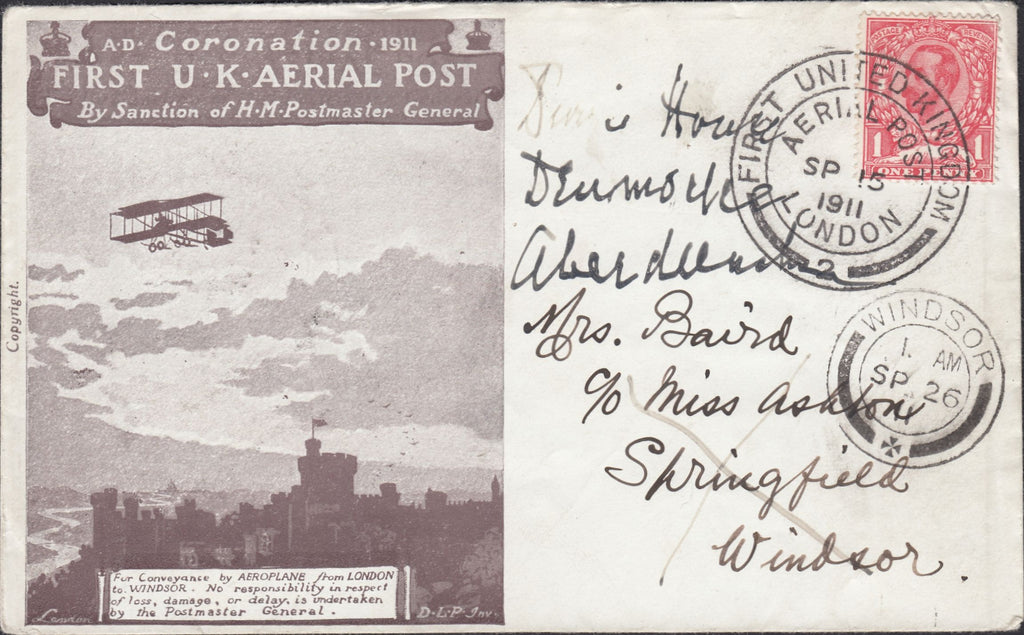 A·D· Coronation · 1911
FIRST U·K·AERIAL POST
By Sanction of H·M·Postmaster General
Copyright.
For Conveyance by AEROPLANE from LONDON
to WINDSOR. No responsibility in respect
of loss, damage, or delay, is undertaken
by the Postmaster General.
London
D·L·P Inv.
POSTAGE REVENUE
1 1
ONE PENNY
FIRST UNITED KINGDOM
AERIAL POST
SP 15
1911
LONDON
2
Mrs. Baird
c/o Miss Ashton
Springfield
Windsor.
WINDSOR
1. AM
SP 26
11